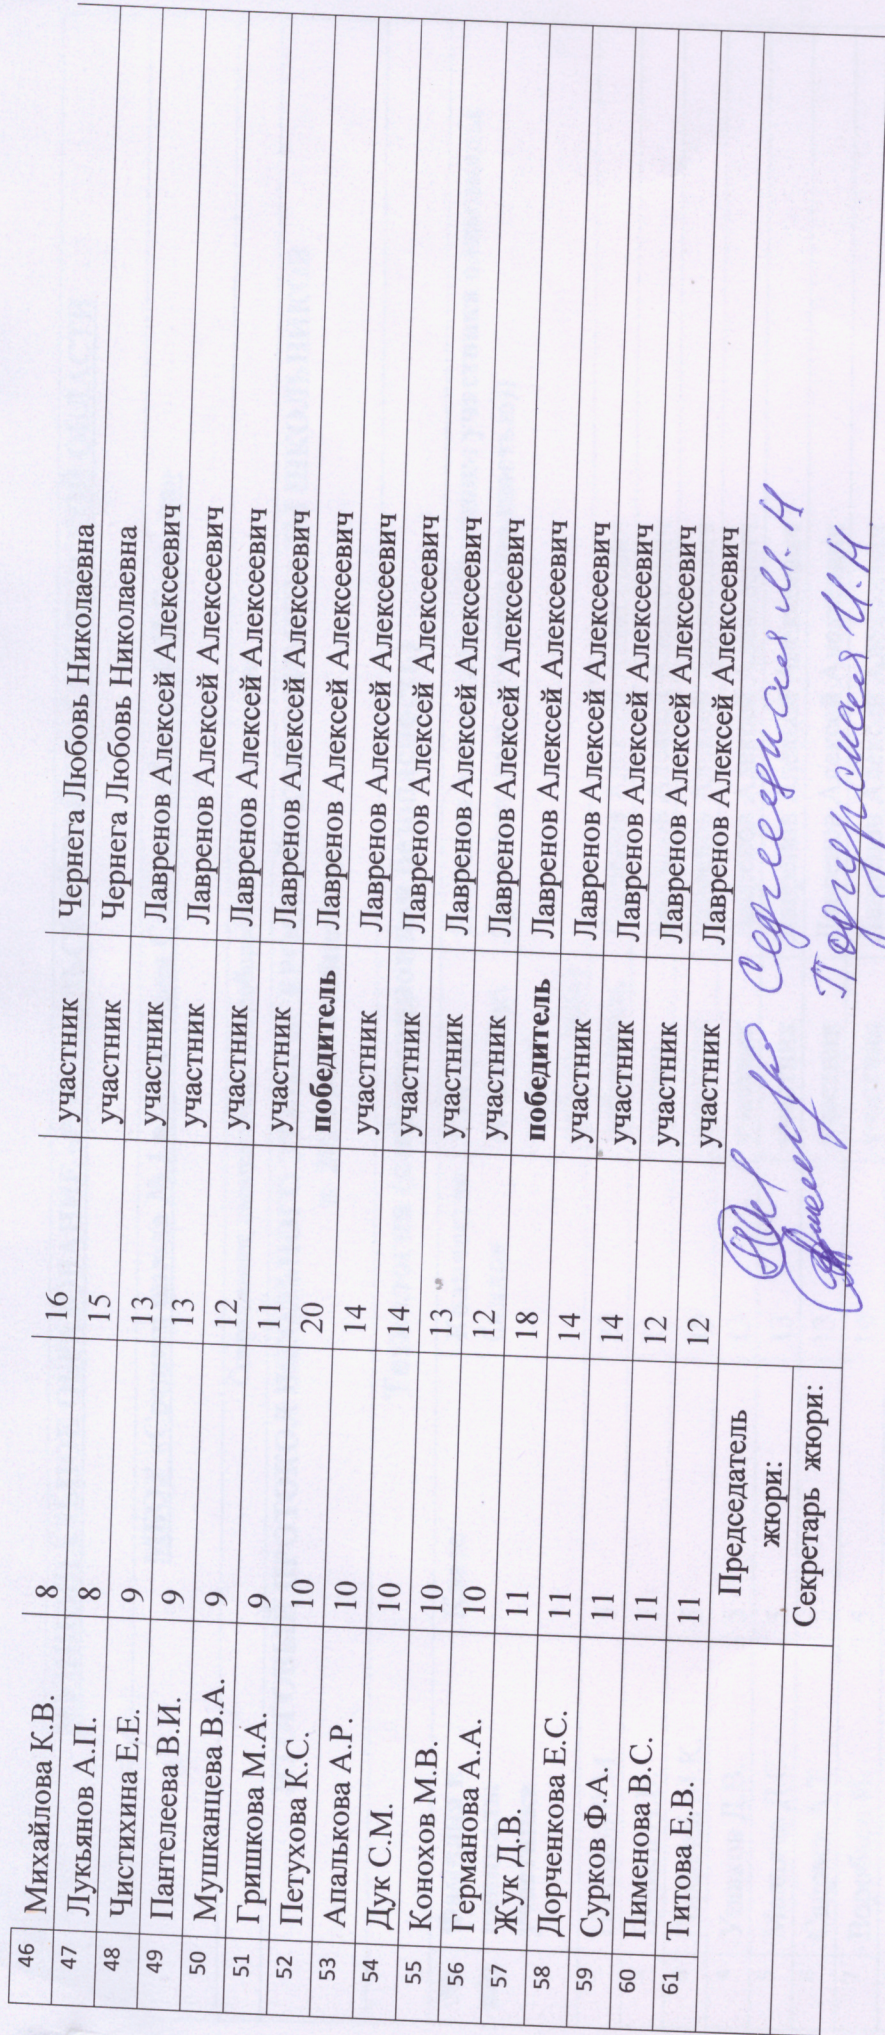 46 Михайлова К.В. 8 16 участник Чернега Любовь Николаевна
47 Лукьянов А.П. 8 15 участник Чернега Любовь Николаевна
48 Чистихина Е.Е. 9 13 участник Лавренов Алексей Алексеевич
49 Пантелеева В.И. 9 13 участник Лавренов Алексей Алексеевич
50 Мушканцева В.А. 9 12 участник Лавренов Алексей Алексеевич
51 Гришкова М.А. 9 11 участник Лавренов Алексей Алексеевич
52 Петухова К.С. 10 20 победитель Лавренов Алексей Алексеевич
53 Апалькова А.Р. 10 14 участник Лавренов Алексей Алексеевич
54 Дук С.М. 10 14 участник Лавренов Алексей Алексеевич
55 Конохов М.В. 10 13 участник Лавренов Алексей Алексеевич
56 Германова А.А. 10 12 участник Лавренов Алексей Алексеевич
57 Жук Д.В. 11 18 победитель Лавренов Алексей Алексеевич
58 Дорченкова Е.С. 11 14 участник Лавренов Алексей Алексеевич
59 Сурков Ф.А. 11 14 участник Лавренов Алексей Алексеевич
60 Пименова В.С. 11 12 участник Лавренов Алексей Алексеевич
61 Титова Е.В. 11 12 участник Лавренов Алексей Алексеевич
Председатель
жюри: М.Н
Секретарь жюри: Подгурская И.Н.